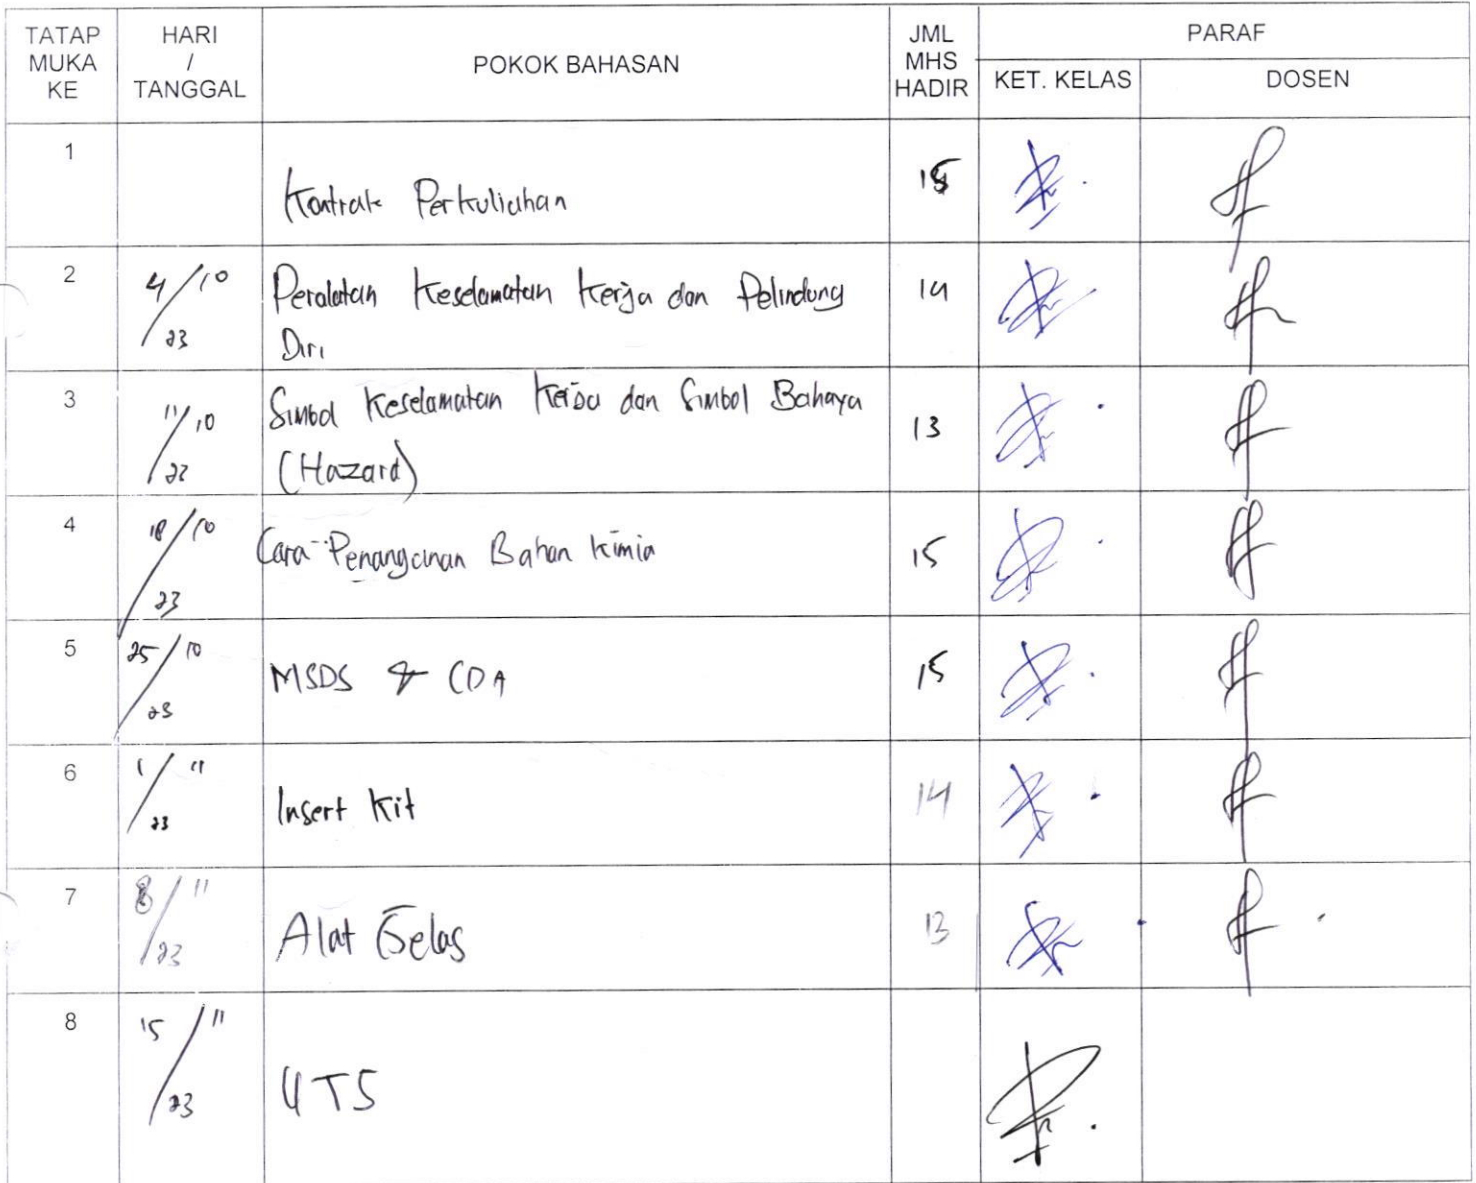 TATAP MUKA KE
HARI / TANGGAL
POKOK BAHASAN
JML MHS HADIR
PARAF
KET. KELAS
DOSEN
1
Kontrak Perkuliahan
15
2
4/10/23
Peralatan Keselamatan Kerja dan Pelindung
Diri
14
3
11/10/23
Simbol Keselamatan Kerja dan Simbol Bahaya
(Hazard)
13
4
18/10/23
Cara Penanganan Bahan Kimia
15
5
25/10/23
MSDS & COA
15
6
1/11/23
Insert Kit
14
7
8/11/23
Alat Gelas
13
8
15/11/23
UTS